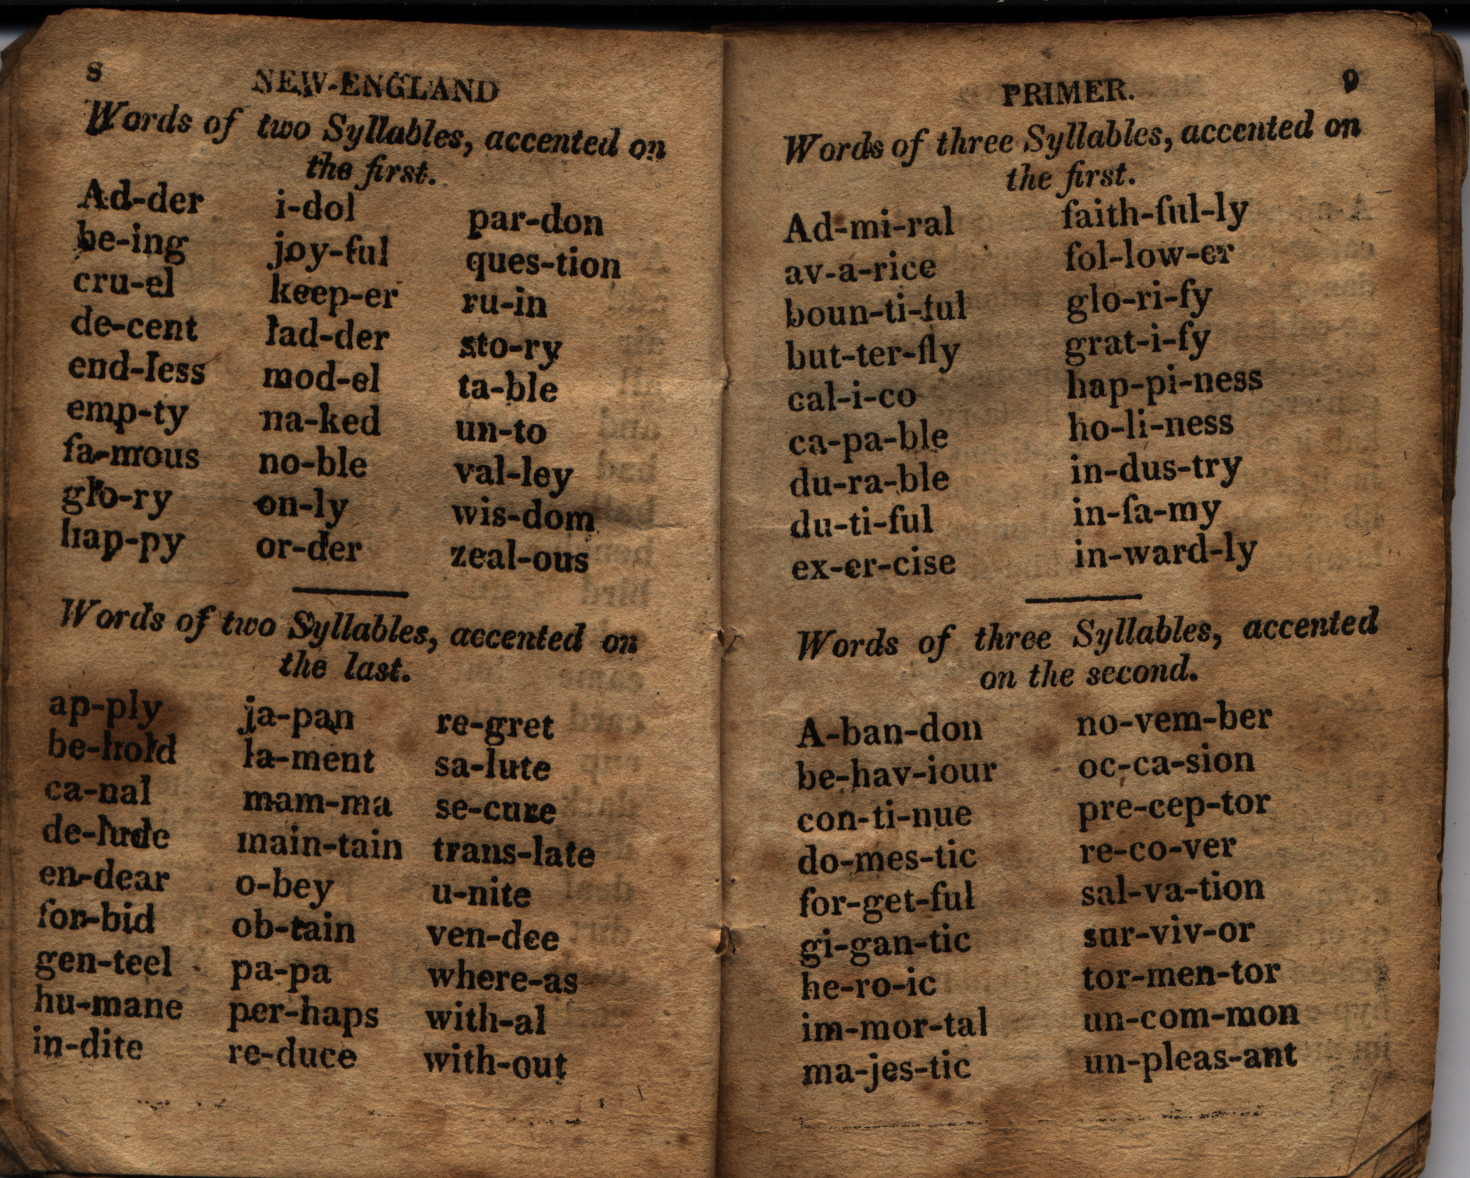 8 NEW-ENGLAND
Words of two Syllables, accented on
the first.
Ad-der i-dol par-don
be-ing joy-ful ques-tion
cru-el keep-er ru-in
de-cent lad-der sto-ry
end-less mod-el ta-ble
emp-ty na-ked un-to
fa-mous no-ble val-ley
glo-ry on-ly wis-dom
hap-py or-der zeal-ous
Words of two Syllables, accented on
the last.
ap-ply ja-pan re-gret
be-hold la-ment sa-lute
ca-nal mam-ma se-cure
de-lude main-tain trans-late
en-dear o-bey u-nite
for-bid ob-tain ven-dee
gen-teel pa-pa where-as
hu-mane per-haps with-al
in-dite re-duce with-out
PRIMER. 9
Words of three Syllables, accented on
the first.
Ad-mi-ral faith-ful-ly
av-a-rice fol-low-er
boun-ti-ful glo-ri-fy
but-ter-fly grat-i-fy
cal-i-co hap-pi-ness
ca-pa-ble ho-li-ness
du-ra-ble in-dus-try
du-ti-ful in-fa-my
ex-er-cise in-ward-ly
Words of three Syllables, accented
on the second.
A-ban-don no-vem-ber
be-hav-iour oc-ca-sion
con-ti-nue pre-cep-tor
do-mes-tic re-co-ver
for-get-ful sal-va-tion
gi-gan-tic sur-viv-or
he-ro-ic tor-men-tor
im-mor-tal un-com-mon
ma-jes-tic un-pleas-ant